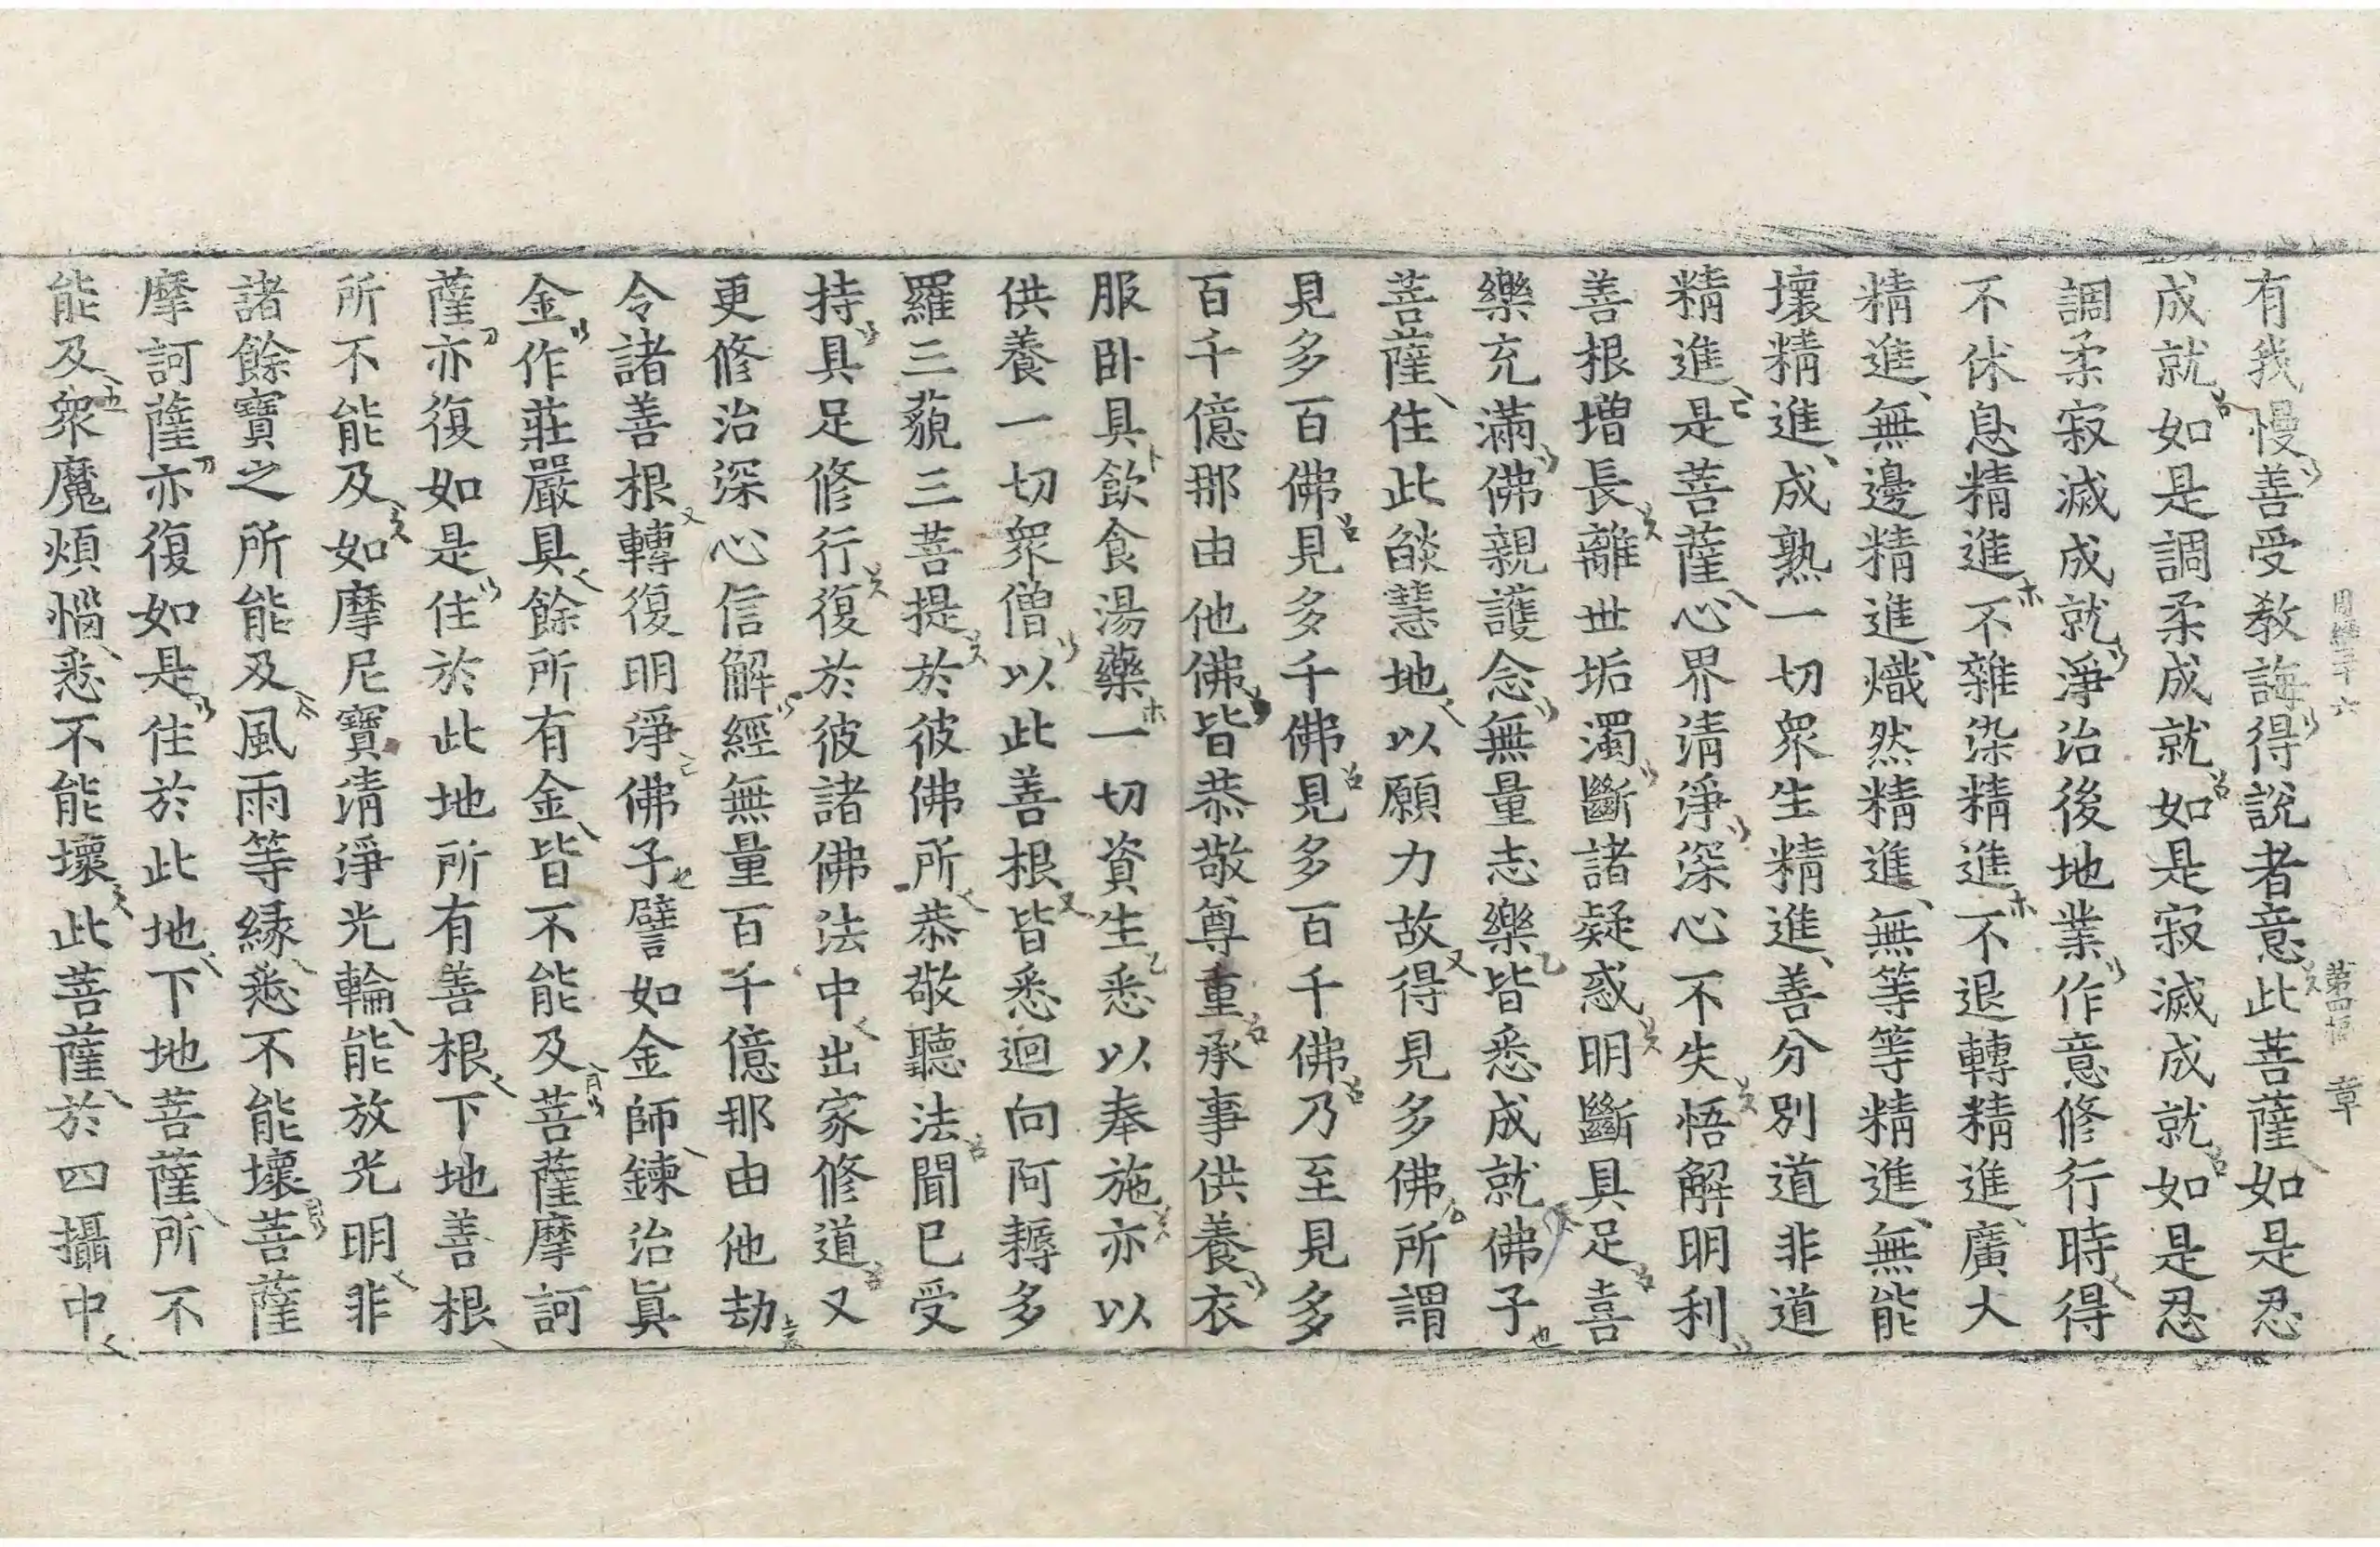 周經三十六 第四幅 章
有我慢善受教誨得說者意此菩薩如是忍
成就如是調柔成就如是寂滅成就如是忍
調柔寂滅成就淨治後地業作意修行時得
不休息精進不雜染精進不退轉精進廣大
精進無邊精進熾然精進無等等精進無能
壞精進成熟一切眾生精進善分別道非道
精進是菩薩心界清淨深心不失悟解明利
善根增長離世垢濁斷諸疑惑明斷具足喜
樂充滿佛親護念無量志樂皆悉成就佛子
菩薩住此燄慧地以願力故得見多佛所謂
見多百佛見多千佛見多百千佛乃至見多
百千億那由他佛皆恭敬尊重承事供養衣
服卧具飲食湯藥一切資生悉以奉施亦以
供養一切眾僧以此善根皆悉迴向阿耨多
羅三藐三菩提於彼佛所恭敬聽法聞已受
持具足修行復於彼諸佛法中出家修道又
更修治深心信解經無量百千億那由他劫
令諸善根轉復明淨佛子譬如金師鍊治眞
金作莊嚴具餘所有金皆不能及菩薩摩訶
薩亦復如是住於此地所有善根下地善根
所不能及如摩尼寶清淨光輪能放光明非
諸餘寶之所能及風雨等緣悉不能壞菩薩
摩訶薩亦復如是住於此地下地菩薩所不
能及眾魔煩惱悉不能壞此菩薩於四攝中